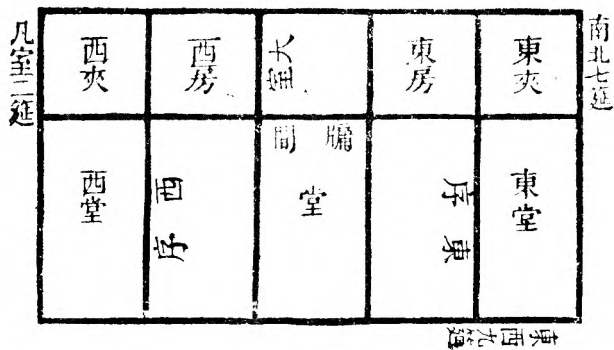 南北七筵
東夾
東房
大室
西房
西夾
凡室二筵
東堂
東序
牖間
堂
西序
西堂
東西九筵